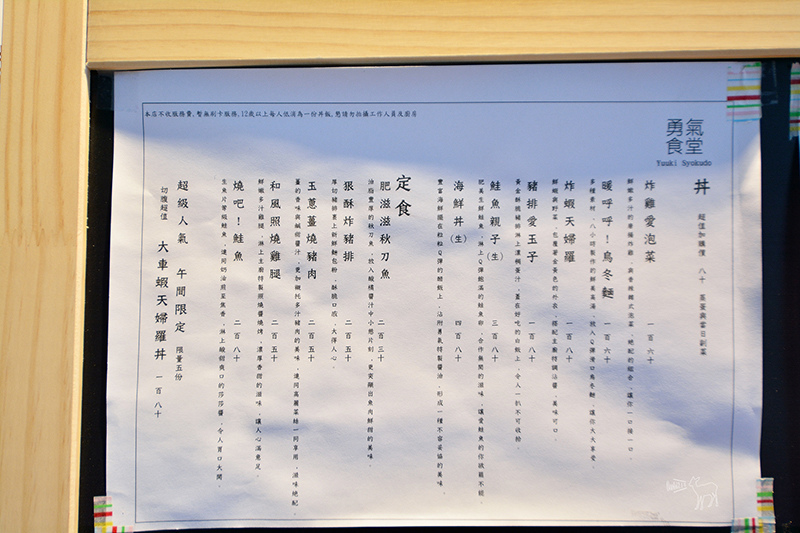 本店不收服務費,暫無刷卡服務,12歲以上每人低消為一份丼飯,懇請勿拍攝工作人員及廚房
勇氣食堂
Yuuki Syokudo
丼 超值加購價 八十 蒸蛋與當日副菜
炸雞愛泡菜 一百六十
鮮嫩多汁的唐揚炸雞,與香辣韓式泡菜,絕配的組合,讓你一口接一口。
暖呼呼!烏冬麵 一百六十
多種素材,八小時製作的鮮美高湯,放入Q彈滑口烏冬麵,讓你大大享受。
炸蝦天婦羅 一百八十
鮮蝦與野菜,包覆著金黃色的外衣,搭配主廚特調沾醬,美味可口。
豬排愛玉子 一百八十
黃金酥脆豬排淋上濃稠蛋汁,蓋在好吃的白飯上,令人一扒不可收拾。
鮭魚親子(生) 三百八十
肥美生鮮鮭魚,淋上Q彈飽滿的鮭魚卵,合作無間的滋味,讓愛鮭魚的你欲罷不能。
海鮮丼(生) 四百八十
豐富海鮮鋪在粒粒Q彈的醋飯上,沾附勇氣特製醬油,形成一種不容妥協的美味。
定食
肥滋滋秋刀魚 二百三十
油脂豐厚的秋刀魚,放入酸橘醬汁中小憩片刻,更突顯出魚肉鮮甜的美味。
狠酥炸豬排 二百五十
厚切豬排裹上新鮮麵包粉,酥脆口感,大得人心。
玉蔥薑燒豬肉 二百五十
薑的香味與鹹甜醬汁,更加襯托多汁豬肉的美味,連同高麗菜絲一同享用,滋味絕配。
和風照燒雞腿 二百五十
鮮嫩多汁雞腿,淋上主廚特製照燒醬燒烤,濃厚香甜的滋味,讓人心滿意足。
燒吧!鮭魚 二百八十
生魚片等級鮭魚,連同奶油煎至焦香,淋上酸甜爽口的莎莎醬,令人胃口大開。
超級人氣 午間限定 限量五份
切腹超值 大車蝦天婦羅丼 一百八十